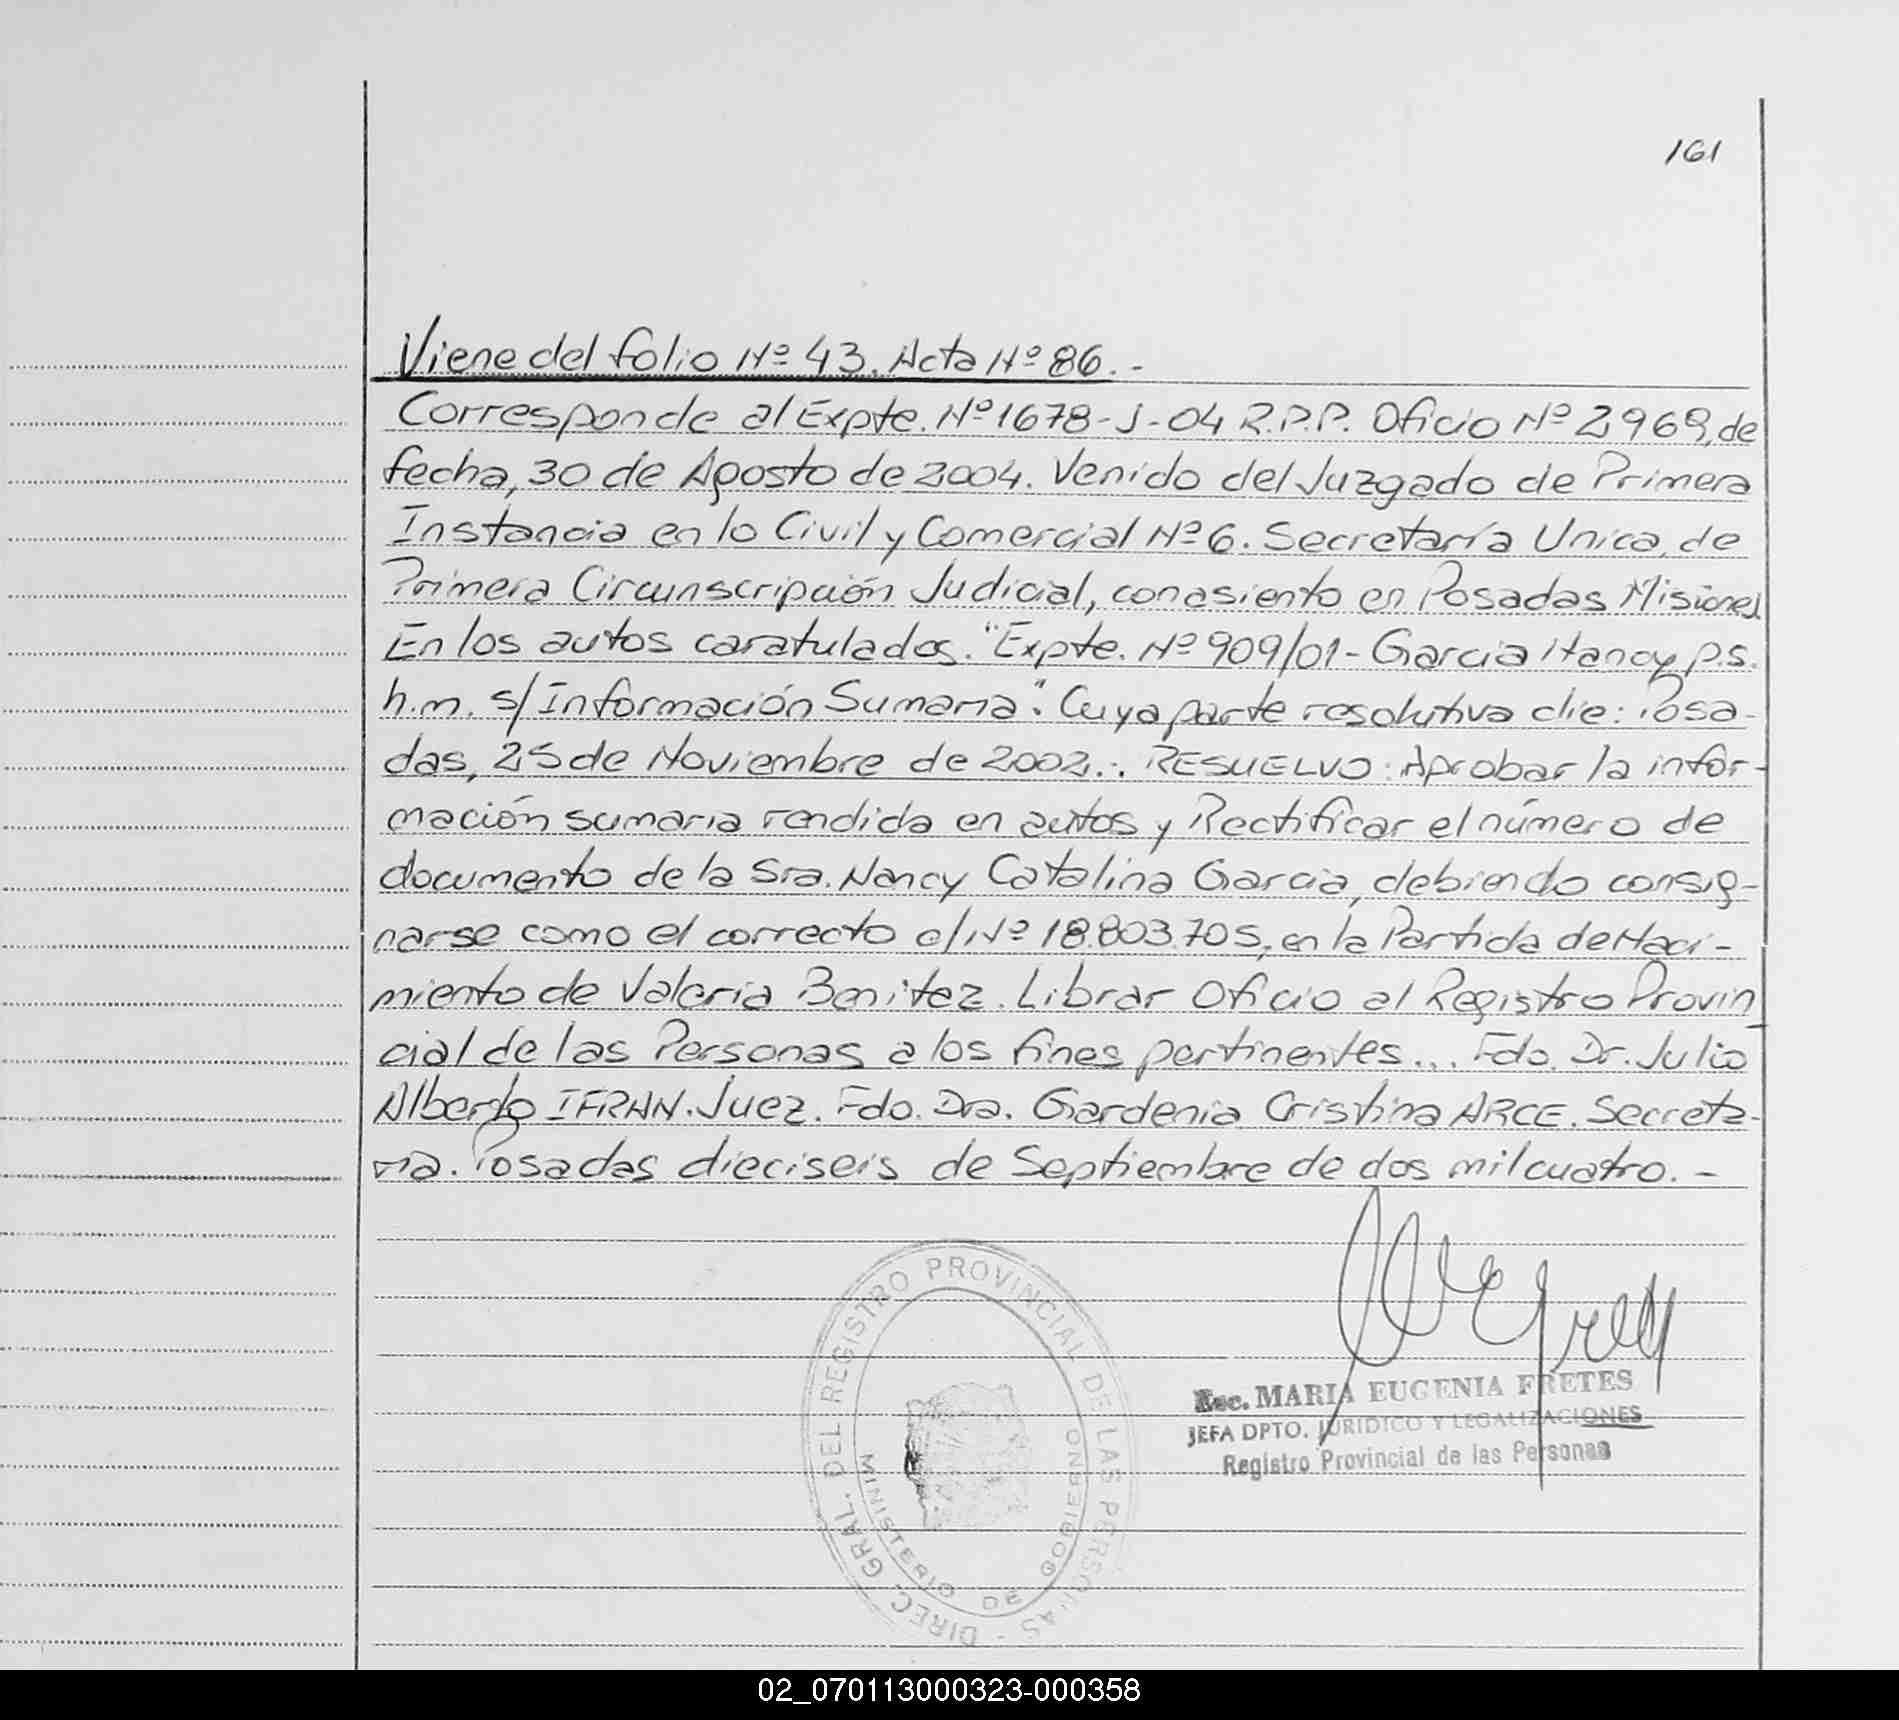 161
Viene del folio Nº 43. Acta Nº 86.-
Corresponde al Expte. Nº 1678-J-04 R.P.P. Oficio Nº 2969, de
fecha, 30 de Agosto de 2004. Venido del Juzgado de Primera
Instancia en lo Civil y Comercial Nº 6. Secretaría Unica, de
Primera Circunscripción Judicial, con asiento en Posadas Misiones.
En los autos caratulados. "Expte. Nº 909/01 - Garcia Nancy p.s.
h.m. s/ Información Sumaria". Cuya parte resolutiva dice: Posa-
das, 25 de Noviembre de 2002... RESUELVO: Aprobar la infor-
mación sumaria rendida en autos y Rectificar el número de
documento de la Sra. Nancy Catalina Garcia, debiendo consig-
narse como el correcto el Nº 18.803.705, en la Partida de Naci-
miento de Valeria Benitez. Librar Oficio al Registro Provin
cial de las Personas a los fines pertinentes... Fdo. Dr. Julio
Alberto IFRAN. Juez. Fdo. Dra. Gardenia Cristina ARCE. Secreta-
ria. Posadas dieciseis de Septiembre de dos mil cuatro.-
DIREC. GRAL. DEL REGISTRO PROVINCIAL DE LAS PERSONAS -
MINISTERIO DE GOBIERNO
Esc. MARIA EUGENIA FRETES
JEFA DPTO. JURIDICO Y LEGALIZACIONES
Registro Provincial de las Personas
02_070113000323-000358